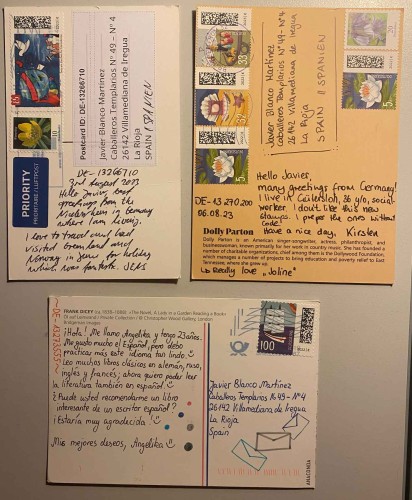 Postcard ID: DE-13266710
Javier Blanco Martinez
Caballeros Templarios Nº 49 - Nº 4
26142 Villamediana de Iregua
La Rioja
SPAIN / SPANIEN
PRIORITY
PRIORITAIRE / LUFTPOST
DE-13266710
3rd August 2023
Hello Javier,
greetings from the
in Germany
where I am living.
I love to travel and had
visited Greenland and
Norway in June for holiday
which was fantastic.
Javier Blanco Martinez
Caballeros Templarios Nº 49 - Nº 4
26142 Villamediana de Iregua
La Rioja
SPAIN / SPANIEN
33
32
5
5
Hello Javier,
many greetings from Germany!
I live in Gütersloh, 36 y/o, social-
worker. I don't like this new
stamps. I prefer the ones without
Code!
Have a nice day, Kirsten
DE-13 270 200
06.08.23
Dolly Parton
Dolly Parton is an American singer-songwriter, actress, philanthropist, and
businesswoman, known primarily for her work in country music. She has founded
a number of charitable organizations, chief among them is the Dollywood Foundation,
which manages a number of projects to bring education and poverty relief to East
Tennessee, where she grew up.
Really love "Joline"
FRANK DICEY (ca. 1838-1888) «The Novel, A Lady in a Garden Reading a Book»
Öl auf Leinwand / Private Collection / © Christopher Wood Gallery, London
Bridgeman Images
¡Hola! Me llamo Angelika y tengo 23 años.
Me gusta mucho el Español, pero debo
practicar más este idioma tan lindo
Leo muchos libros clásicos en alemán, ruso,
inglés y francés; ahora quiero poder leer
la literatura también en español.
¿Puede usted recomendarme un libro
interesante de un escritor español?
¡Estaría muy agradecida!
Mis mejores deseos, Angelika
100
Javier Blanco Martinez
Caballeros Templarios Nº 49 - Nº 4
26142 Villamediana de Iregua
La Rioja
Spain